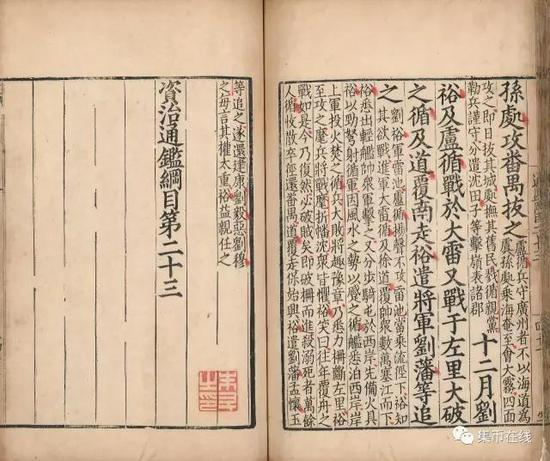 孫處攻番禺拔之
盧循兵守廣州者不以海道為
虞孫處乘海奄至會大霧四面
攻之即日拔其城處撫其舊民戮循親黨
勒兵謹守分遣沈田子等擊嶺表諸郡
十二月劉
裕及盧循戰於大雷又戰于左里大破
之循及道覆南走裕遣將軍劉藩等追
之
劉裕軍雷池盧循揚聲不攻雷池當乘流徑下裕知
其欲戰進軍大雷循及徐道覆帥衆數萬塞江而下
裕悉出輕艦帥衆軍擊之又分步騎屯於西岸先備火具
裕以勁弩射循軍因風水之勢以蹙之循艦悉泊西岸岸
上軍投火焚之循兵大敗將趣豫章乃悉力柵斷左里裕
至攻之麾兵將戰麾折幡沈衆皆懼裕笑曰往年覆舟之
戰如是今乃復然必破賊矣即攻柵而進殺溺死者萬餘
人循收散卒徑還番禺道覆走保始興裕遣劉藩孟懷玉
等追之遂還建康劉毅惡劉穆
之每言其權太重裕益親任之
資治通鑑綱目第二十三
集币在线